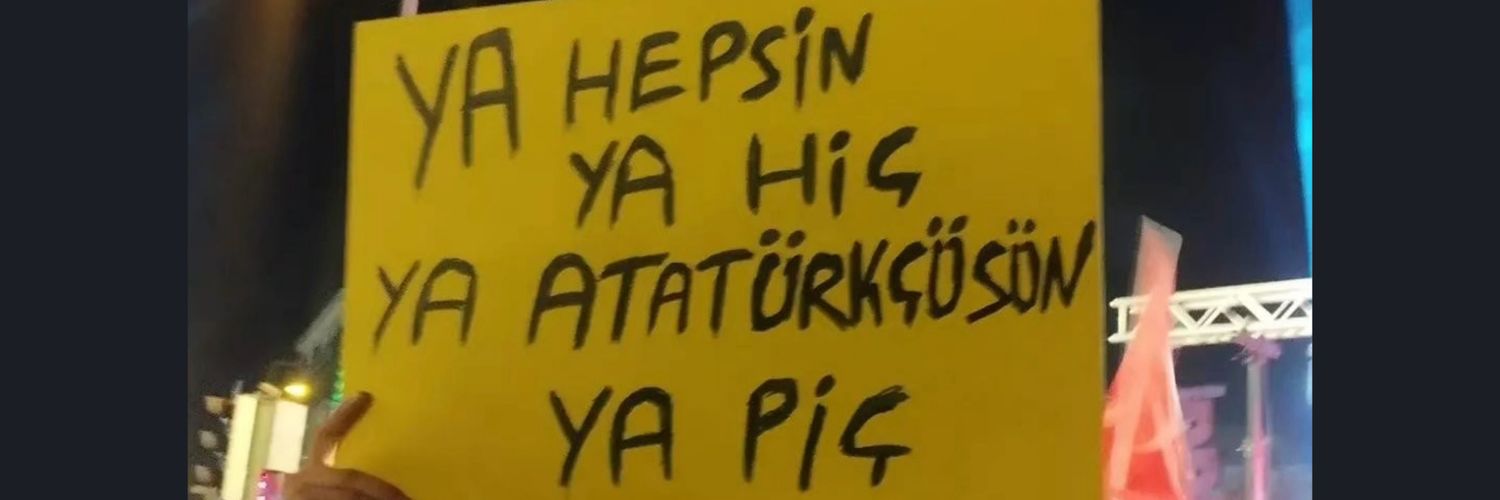 YA HEPSİN
YA HİÇ
YA ATATÜRKÇÜSÜN
YA PİÇ